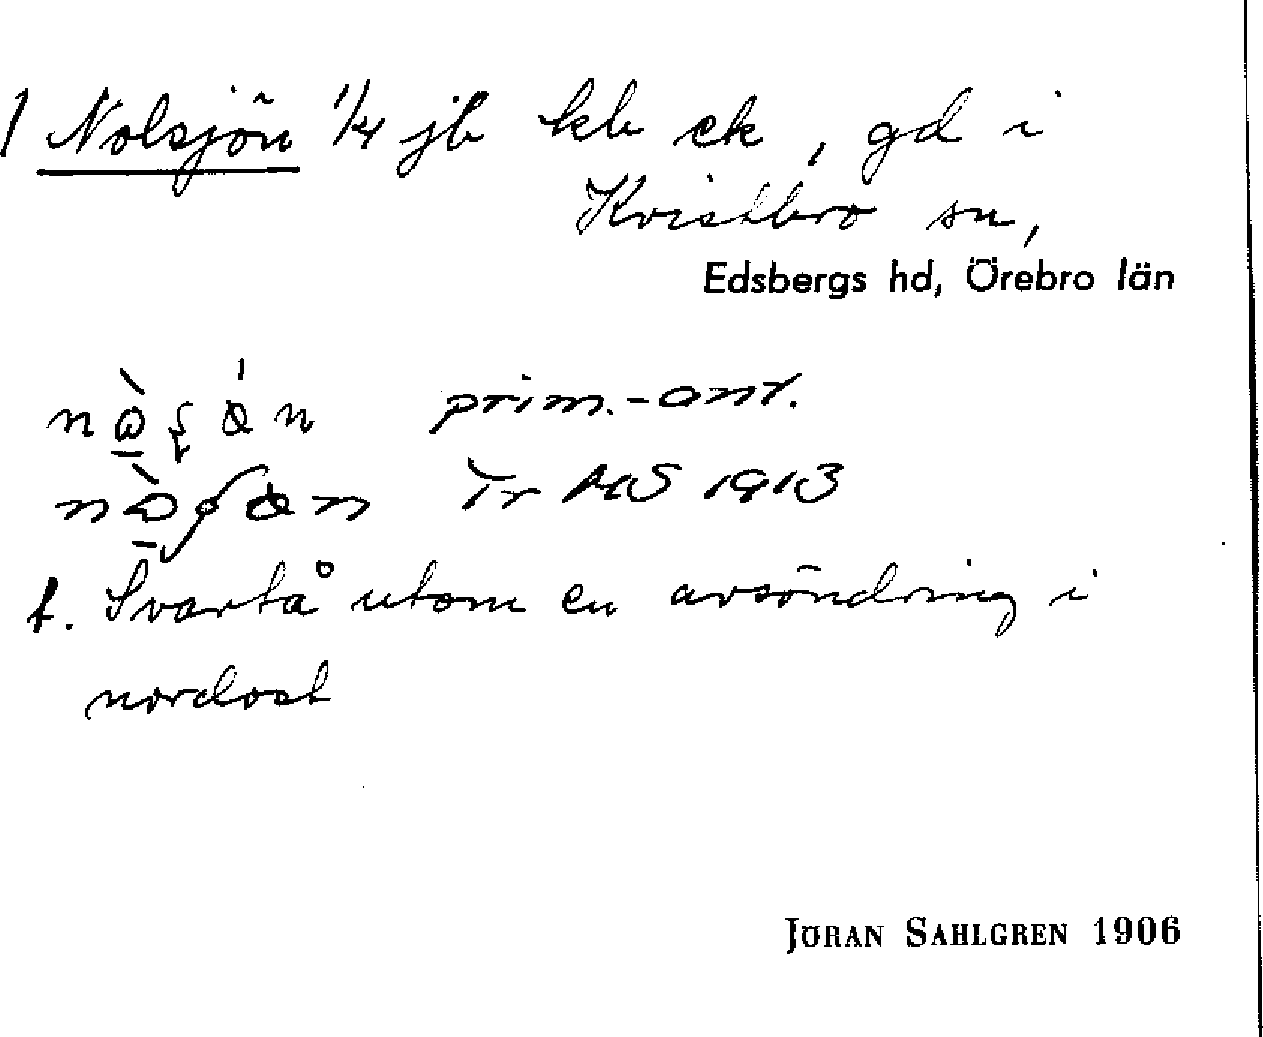 1 Nolsjön 1/4 jb kb ek, gd i
Kvistbro sn,
Edsbergs hd, Örebro län
prim.-ant.
Tr MS 1913
t. Svartå utom en avsöndring i
nordost
JÖRAN SAHLGREN 1906